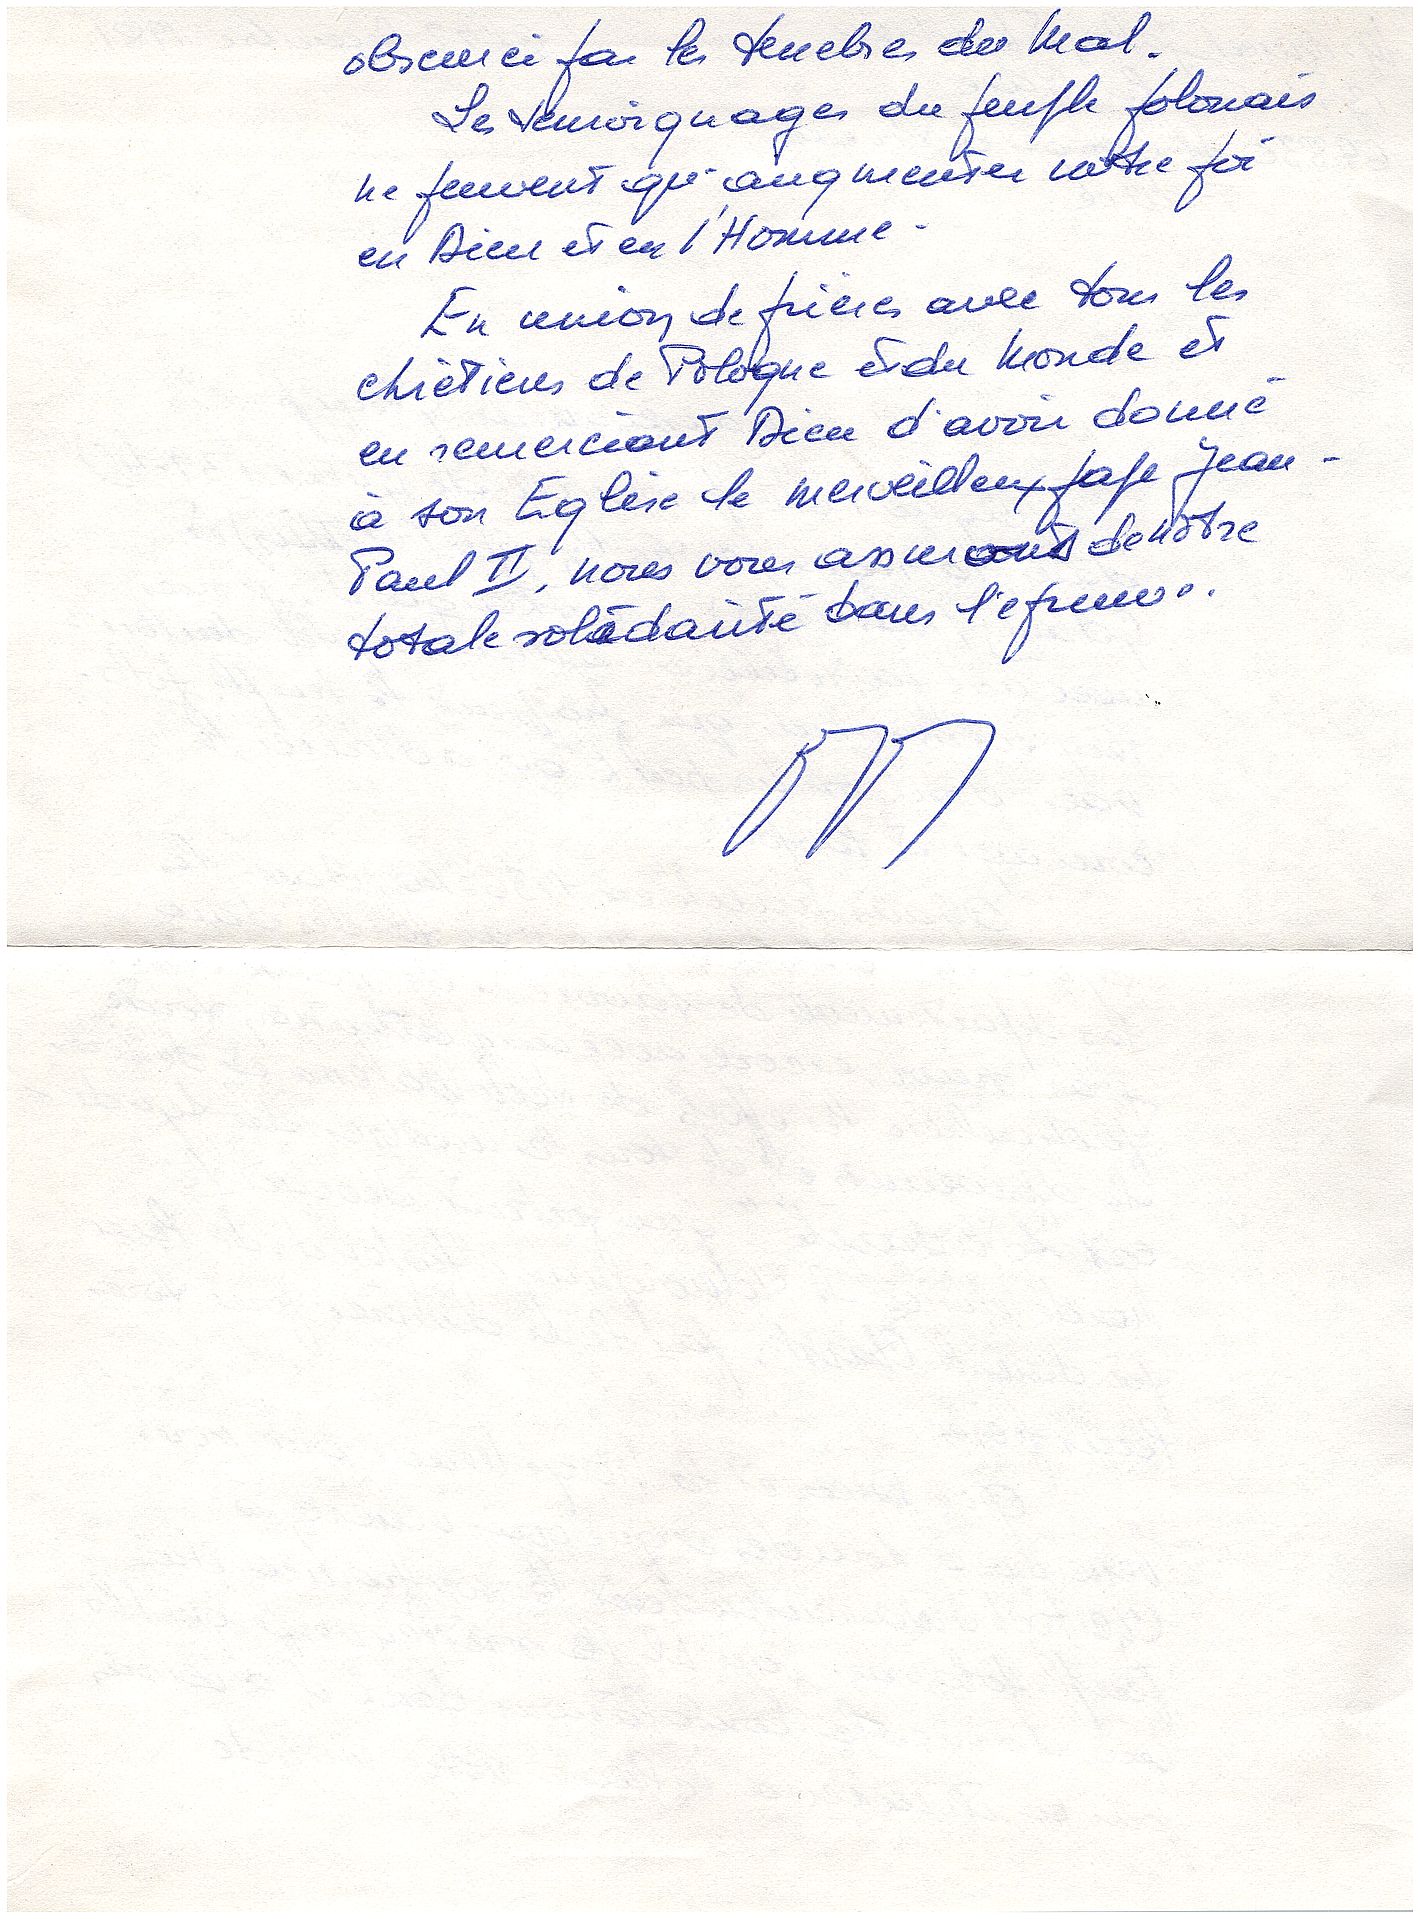 obscurci par les tenebres du Mal.
Les temoignages du peuple polonais
ne peuvent qu'augmenter notre foi
en Dieu et en l'Homme.
En union de prières avec tous les
chrétiens de Pologne et du Monde et
en remerciant Dieu d'avoir donné
à son Eglise le merveilleux pape Jean-
Paul II, nous vous assurons de notre
totale solidarité dans l'epreuve.